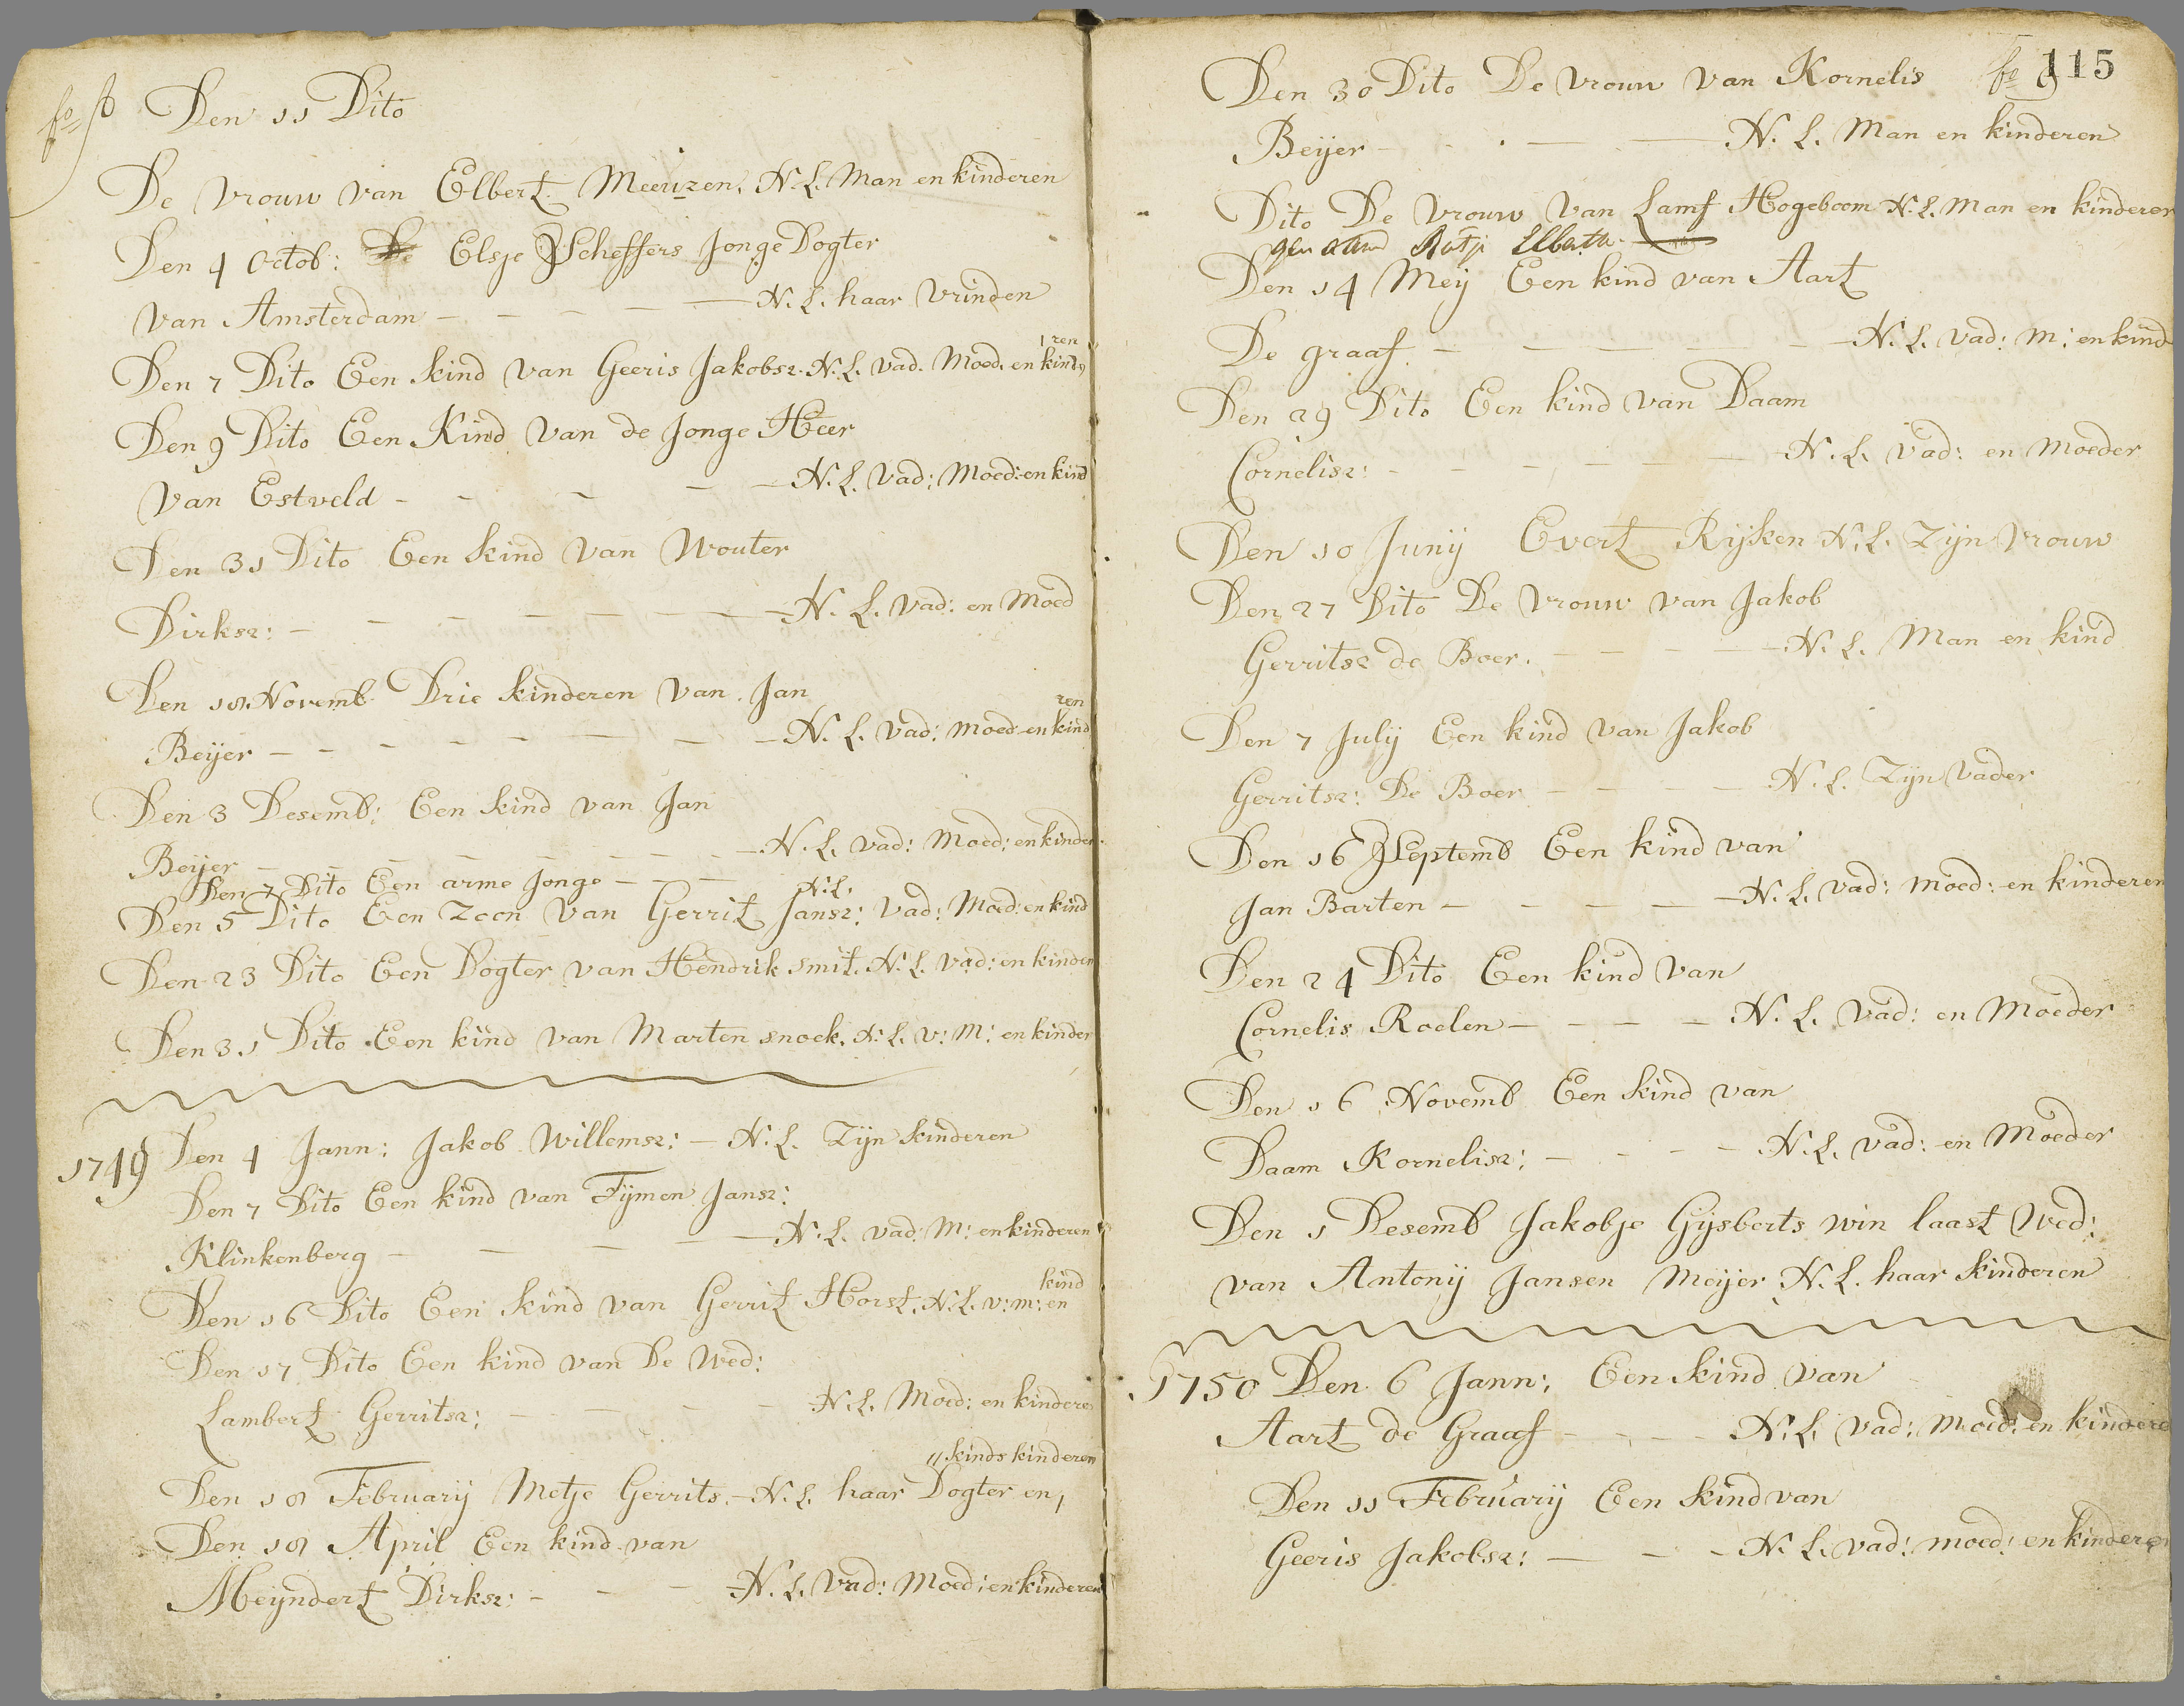 Den 11 Dito
De Vrouw van Elbert Meeuzen, N. L. Man en kinderen
Den 4 Octob: Elsje Scheffers Jonge Dogter
van Amsterdam - - - - N. L. haar Vrinden
Den 7 Dito Een kind van Geeris Jakobsz. N. L. Vad. Moed. en kinderen
Den 9 Dito Een Kind van de Jonge Heer
Van Estveld - - - - N. L. Vad: Moed: en kind
Den 31 Dito Een kind van Wouter
Dirksz: - - - - - - N. L. Vad: en Moed
Den 18 Novemb Drie kinderen van Jan
Beijer - - - - - - - N. L. Vad: Moed en kinderen
Den 3 Desemb: Een kind van Jan
Beijer - - - - - - - N. L. Vad: Moed: en kinder
Den 7 Dito Een arme Jonge - - - N. L.
Den 5 Dito Een Zoon van Gerrit Jansz: Vad: Moed: en kind
Den 23 Dito Een Dogter van Hendrik Smit. N. L. Vad: en kinder
Den 31 Dito Een kind van Marten snoek. N. L. V: M: en kinder
1749 Den 4 Jann: Jakob Willemsz: - N. L. Zijn kinderen
Den 7 Dito Een kind van Tijmen Jansz:
Klinkenberg - - - - N. L. Vad: M: en kinderen
Den 16 Dito Een kind van Gerrit Horst. N. L. v: m: en kind
Den 17 Dito Een kind van De Wed:
Lambert Gerritsz: - - - - N. L. Moed: en kinderen
Den 18 February Metje Gerrits. - N. L. haar Dogter en, // kinds kinderen
Den 18 April Een kind van
Meijndert Dirksz: - - - N. L. Vad: Moed: en kinderen
fo 9 115
Den 30 Dito De Vrouw van Kornelis
Beijer - - - - - N. L. Man en kinderen
Dito De Vrouw van Lamf Hogeboom N. L. Man en kinderen
genaamd
Den 14 Meij Een kind van Aart
De graaf - - - - - N. L. Vad: M: en kind
Den 29 Dito Een kind van Daam
Cornelisz: - - - - - - N. L. Vad: en Moeder
Den 10 Junij Evert Rijken N. L. Zijn Vrouw
Den 27 Dito De Vrouw van Jakob
Gerritsz de Boer. - - - - - N. L. Man en kind
Den 7 July Een kind van Jakob
Gerritsz: De Boer - - - N. L. Zijn Vader
Den 16 Septemb Een kind van
Jan Barten - - - - - N. L. Vad: Moed: en kinderen
Den 24 Dito Een kind van
Cornelis Roelen - - - - N. L. Vad: en Moeder
Den 16 Novemb Een kind van
Daam Kornelisz: - - - - N. L. Vad: en Moeder
Den 1 Desemb Jakobje Gijsberts win laast Wed:
van Antonij Jansen Meijer N. L. haar kinderen
1750 Den 6 Jann: Een kind van
Aart de Graaf - - - - N. L. Vad: Moed: en kindere
Den 11 February Een kind van
Geeris Jakobsz: - - - N. L. Vad: moed: en kinderen